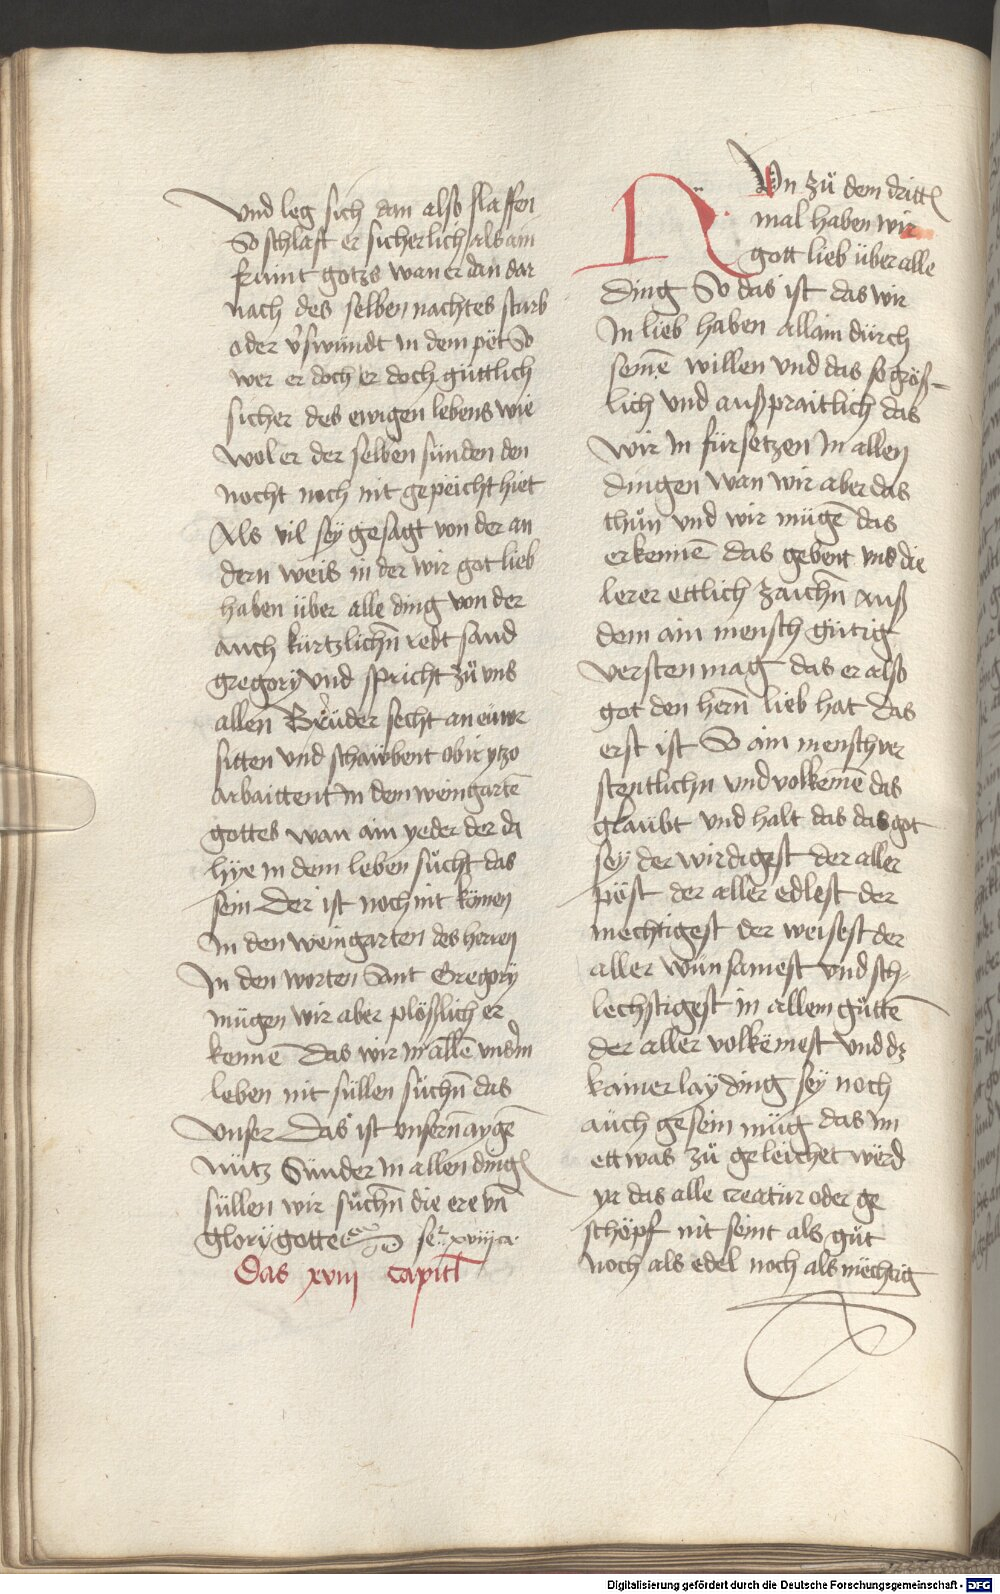 vnd leg sich dan also slaffen
So schlaft er sicherlich als ain
fraint gotzs wan er dan dar
nach des selben nachtes starb
oder v̉swundt in dem pët So
wer er doch er doch güttlich
sicher des ewigen lebens wie
wol er der selben sünden den
nocht noch nit gepeicht hiet
Als vil seÿ gesagt von der an
dern weis in der wir got lieb
haben über alle ding von der
auch kürtzlichn̄ redt sand
gregorÿ vnd spricht zů vns
allen Brüder secht an eüwr
sitten vnd schawbent ob ir ytzo
arbaittent in dem weingartē
gottes wan ain yeder der da
hÿe in dem leben sůcht das
sein Der ist noch nit kömen
In den weingarten des herren
In den worten Sant Gregorÿ
mügen wir aber plösslich er
kennē Das wir in allē vnsm
leben nit süllen sůchn̄ das
vnser Das ist vnsern̄ aygē
nütz Sünder in allen ding
süllen wir sůchn̄ die ere vn̄
glorÿ gottes ser xviij ca
Das xviij capitl
NVn zů dem dritt
mal haben wir
gott lieb über alle
ding So das ist das wir
In lieb haben allain dürch
seinē willen vnd das so grös-
lich vnd ausspraitlich das
wir in fürsetzen In allen
dingen wan wir aber das
thůn vnd wir mügē das
erkennē das gebent vns die
lerer ettlich zaichn̄ auss
dem ain mensch gütig
versten mag das er also
got den hern̄ lieb hat Das
erst ist So ain mensch ver
stentlichn vnd volkemē das
glaübt vnd halt das das got
seÿ der wirdigest der aller
pöst der aller edlest der
mechtigest der weisest der
aller wünsamest vnd sch-
lechstigest in allem gůttē
der aller volkëmest vnd dz
kainerlaÿ ding seÿ noch
aüch gesein müg das im
ettwas zů geleichet wërd
yr das alle creatür oder ge
schöpf nit seint als gůt
noch als edel noch als mechtig
Digitalisierung gefördert durch die Deutsche Forschungsgemeinschaft - DFG